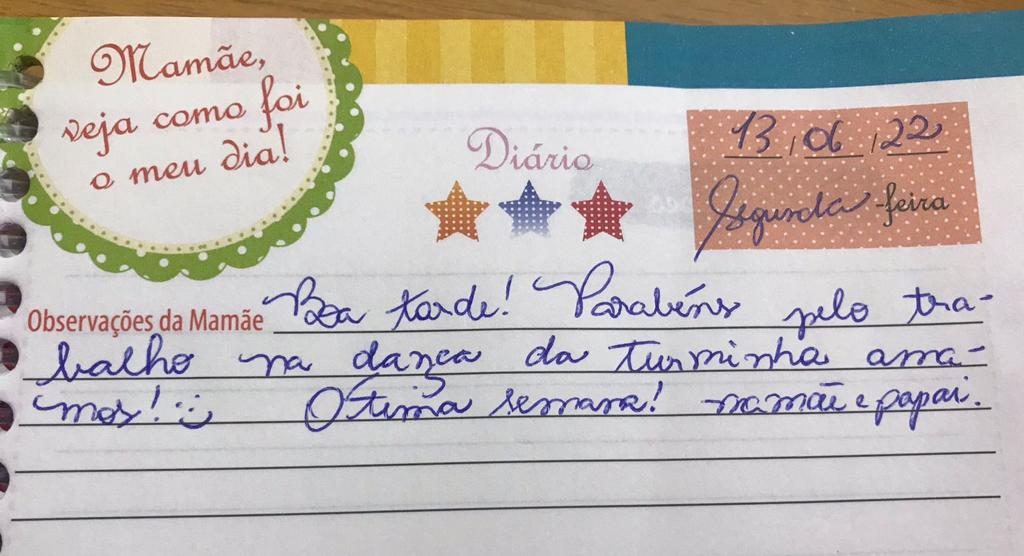 Mamãe,
veja como foi
o meu dia!
Diário
13/06/22
Segunda-feira
Observações da Mamãe Boa tarde! Parabéns pelo tra-
balho na dança da turminha ama-
mos! :) Otima semana! mamãe e papai.